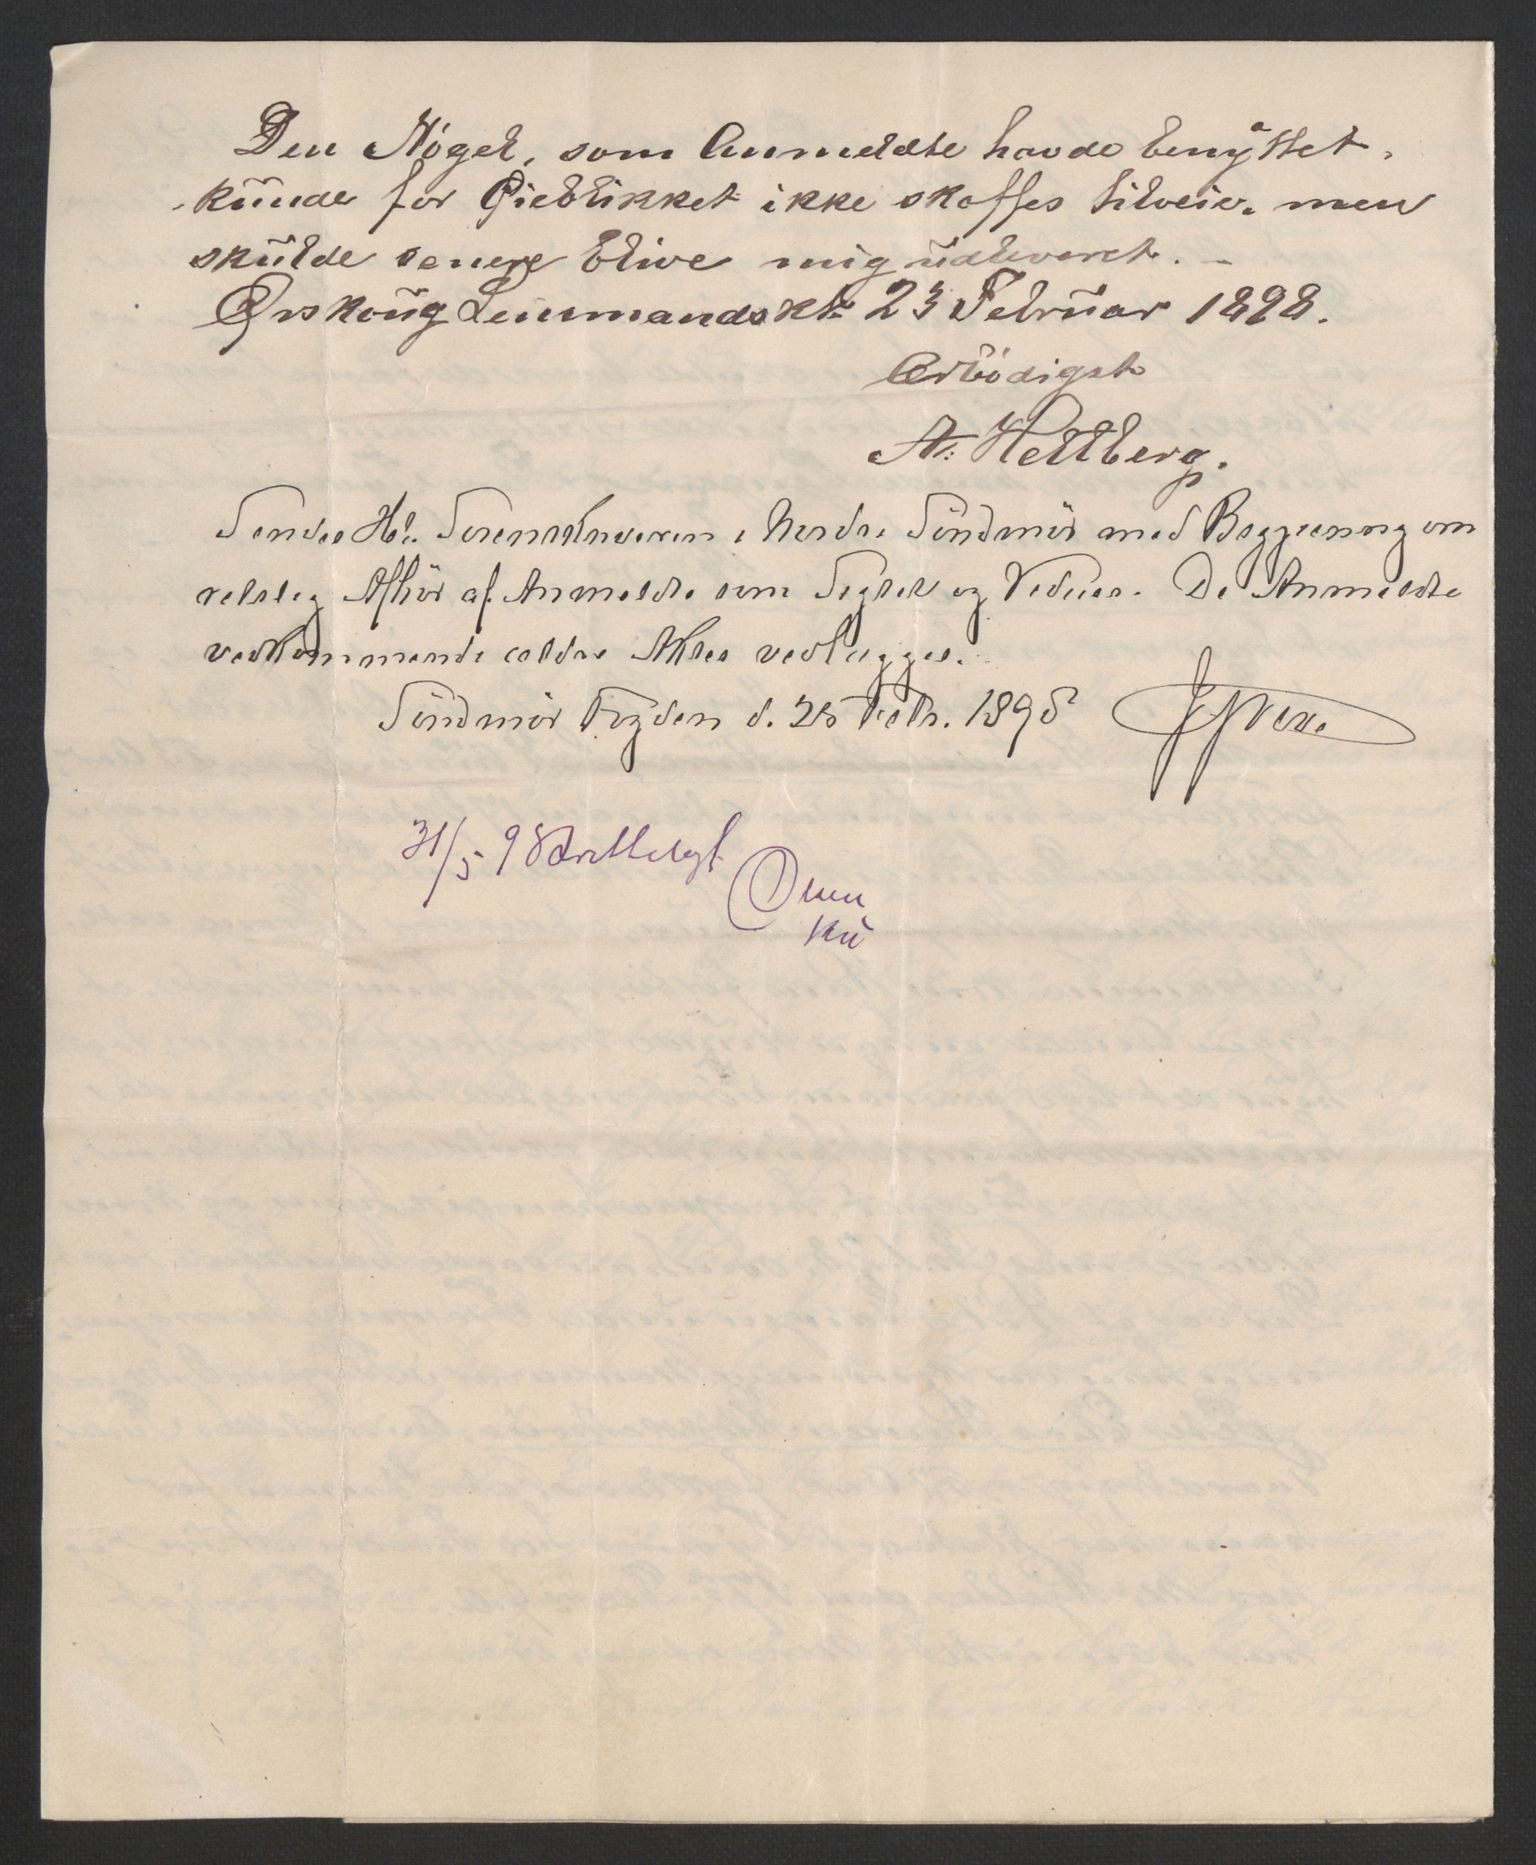 Den Nögel, som Anmeldte havde benyttet,
kunde for Øieblikket ikke skaffes tilveie, men
skulde senere blive mig udleveret. –
Ørskoug Lensmandskt. 23 Februar 1898.
Ærbödigst
A. Helberg.
Sendes Hr. Sorenskriveren i Nordre Söndmör med Begjæring om
retslig Afhör af Anmeldte som Sigtet og Vidner. De Anmeldte
vedkommende ældre Akter vedlægges.
Söndmör Fogderi d. 25 Febr. 1898
31/5 98 Fremlagt